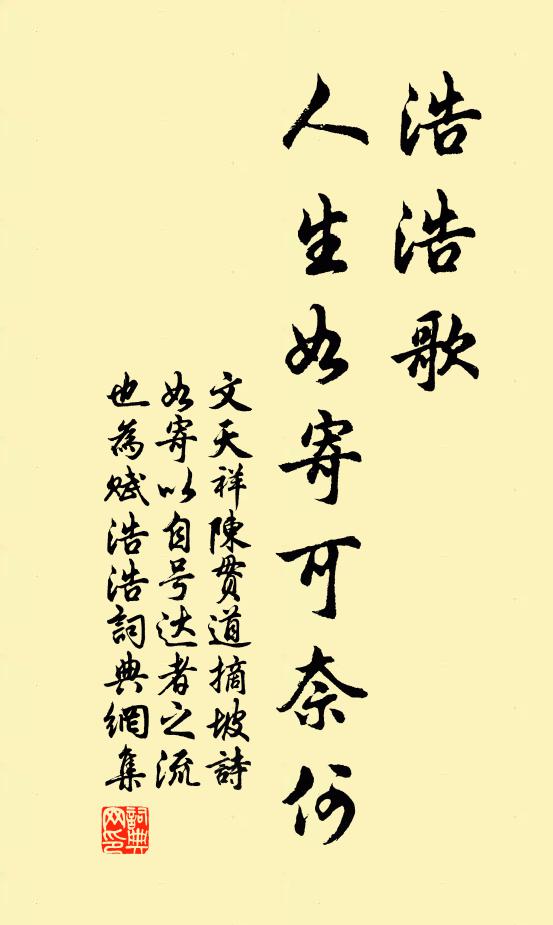 浩浩歌
人生如寄可奈何
文天祥陳贯道摘坡詩
如寄以自号达者之流
也為赋浩浩詞典網集
詞典网印